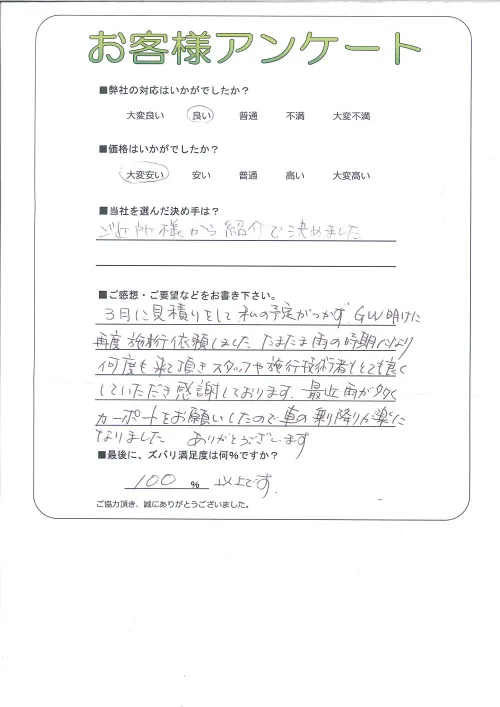 お客様アンケート
■弊社の対応はいかがでしたか？
大変良い 良い 普通 不満 大変不満
■価格はいかがでしたか？
大変安い 安い 普通 高い 大変高い
■当社を選んだ決め手は？
ご近所様から紹介で決めました
■ご感想・ご要望などをお書き下さい。
3月に見積りをして私の予定がつかず、GW明けに
再度施行依頼しました たまたま雨の時期になり
何度も来て頂きスタッフや施行技術者もとても良く
していただき感謝しております。最近雨が多く
カーポートをお願いしたので車の乗り降りが楽に
なりました ありがとうございます
■最後に、ズバリ満足度は何％ですか？
100 ％ 以上です。
ご協力頂き、誠にありがとうございました。